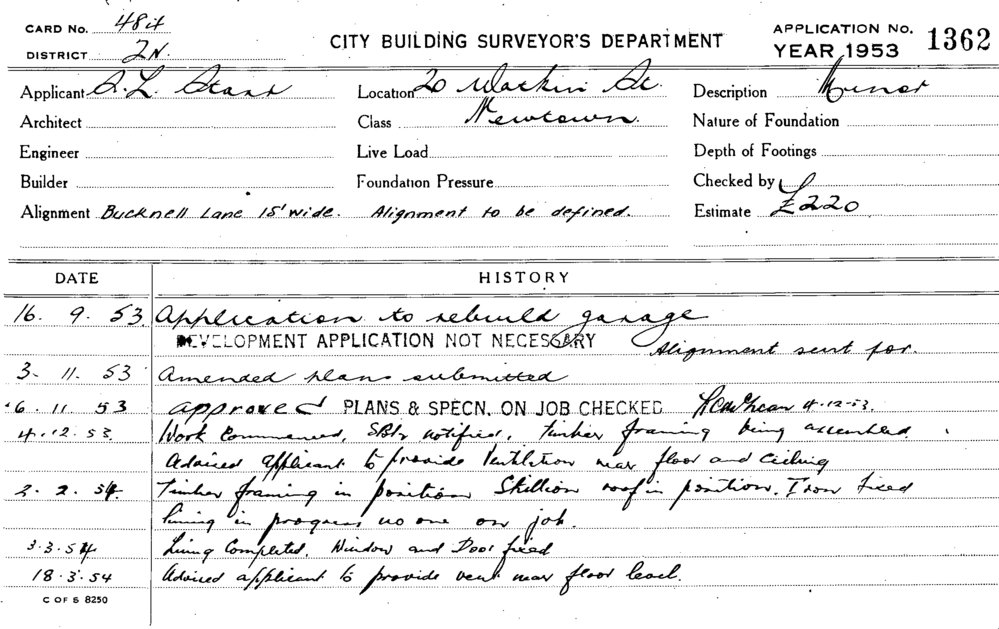 CARD No. 48 it
DISTRICT 2N.
CITY BUILDING SURVEYOR'S DEPARTMENT
APPLICATION No. 1362
YEAR 1953
Applicant A. L. Starr
Location 20 Watkin St.
Description Minor
Architect
Class Newtown.
Nature of Foundation
Engineer
Live Load
Depth of Footings
Builder
Foundation Pressure
Checked by
Alignment Bucknell Lane 15' wide. Alignment to be defined.
Estimate £220
DATE HISTORY
16. 9. 53 Application to rebuild garage
DEVELOPMENT APPLICATION NOT NECESSARY Alignment sent for.
3. 11. 53 Amended plans submitted
6. 11. 53 approved PLANS & SPECN. ON JOB CHECKED 4-12-53.
4.12.53. Work Commenced, notified. Timber framing being assembled.
Advised applicant to provide Ventilation near floor and Ceiling
2. 2. 54 Timber framing in position Skillion roof in position. Iron fixed
lining in progress no one on job.
3.3.54 Lining Completed. Window and Door fixed
18.3.54 Advised applicant to provide vent near floor level.
C OF S 8250